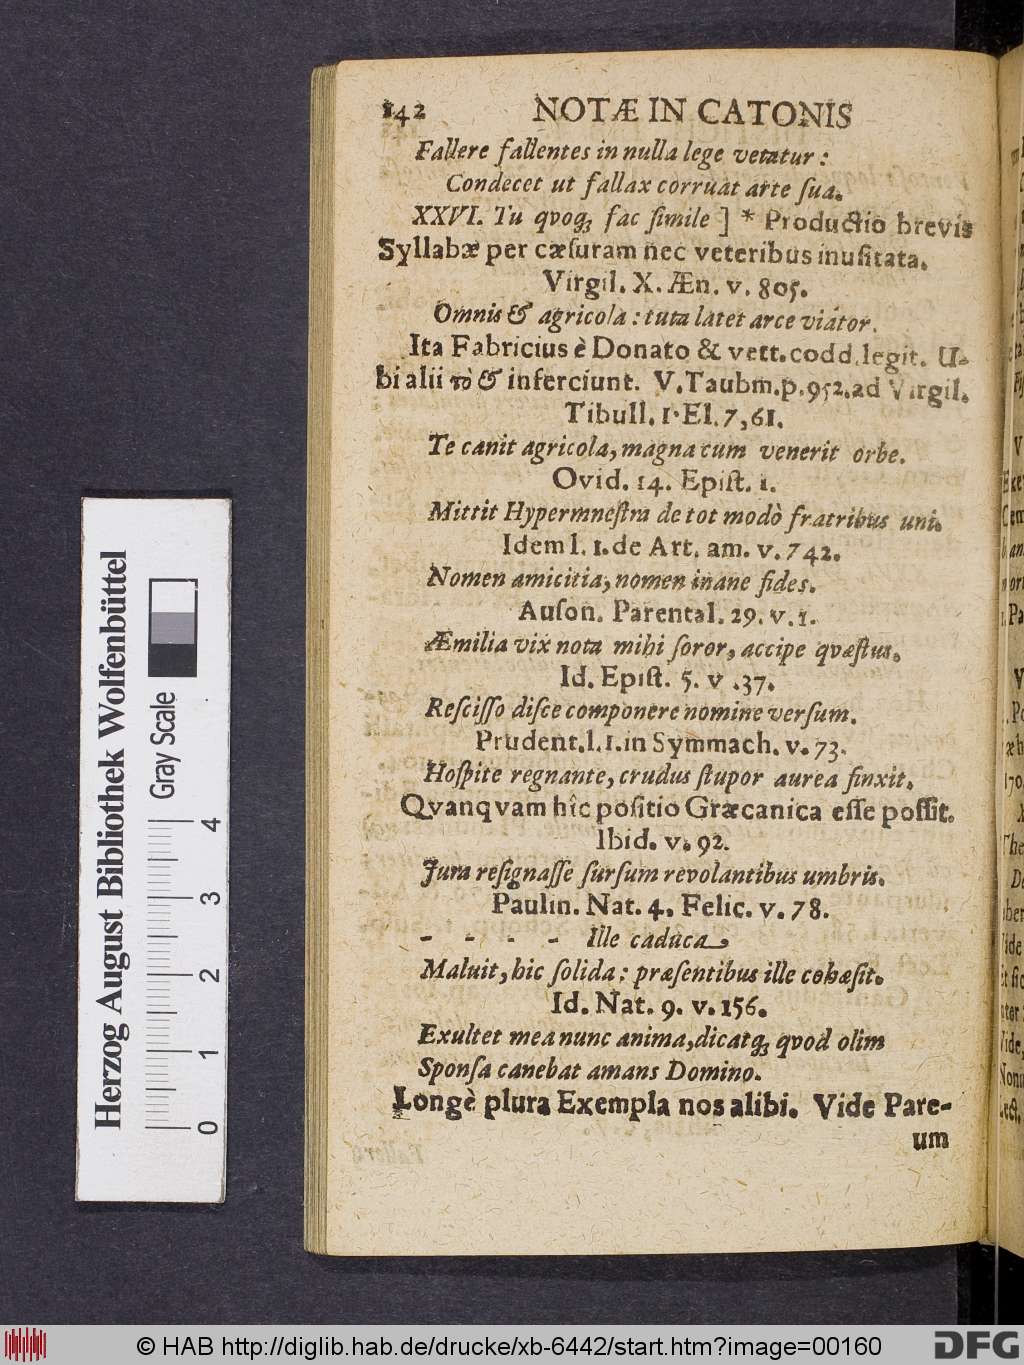 142 NOTÆ IN CATONIS
Fallere fallentes in nulla lege vetatur:
Condecet ut fallax corruat arte ſua.
XXVI. Tu qvoqꝫ fac ſimile] * Productio brevis
Syllabæ per cæſuram nec veteribus inuſitata.
Virgil. X. Æn. v. 805.
Omnis & agricola: tuta latet arce viátor.
Ita Fabricius è Donato & vett. codd. legit. U-
bi alii τὸ & inferciunt. V. Taubm. p. 952. ad Virgil.
Tibull. 1. El. 7, 61.
Te canit agricola, magna cum venerit orbe.
Ovid. 14. Epiſt. 1.
Mittit Hypermneſtra de tot modò fratribus uni.
Idem l. 1. de Art. am. v. 742.
Nomen amicitia, nomen inane fides.
Auſon. Parental. 29. v. 1.
Æmilia vix nota mihi ſoror, accipe qvæſtus.
Id. Epiſt. 5. v. 37.
Reſciſſo diſce componere nomine verſum.
Prudent. l. 1. in Symmach. v. 73.
Hoſpite regnante, crudus ſtupor aurea finxit.
Qvanqvam hîc poſitio Græcanica eſſe poſſit.
Ibid. v. 92.
Jura reſignaſſe ſurſum revolantibus umbris.
Paulin. Nat. 4. Felic. v. 78.
- - - - Ille caduca
Maluit, hic ſolida: præſentibus ille cohæſit.
Id. Nat. 9. v. 156.
Exultet mea nunc anima, dicatqꝫ qvod olim
Sponſa canebat amans Domino.
Longè plura Exempla nos alibi. Vide Pare-
um
Herzog August Bibliothek Wolfenbüttel
Gray Scale
0 1 2 3 4
© HAB http://diglib.hab.de/drucke/xb-6442/start.htm?image=00160
DFG